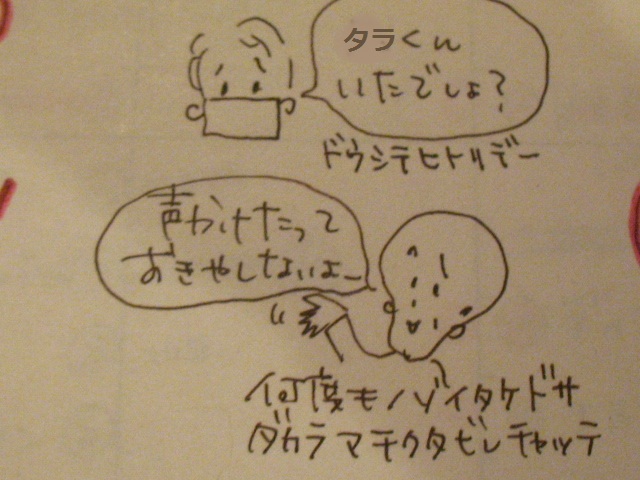 タラくん
いたでしょ?
ドウシテヒトリデー
声かけたって
おきやしないよー
何度モノゾイタケドサ
ダカラマチクタビレチャッテ